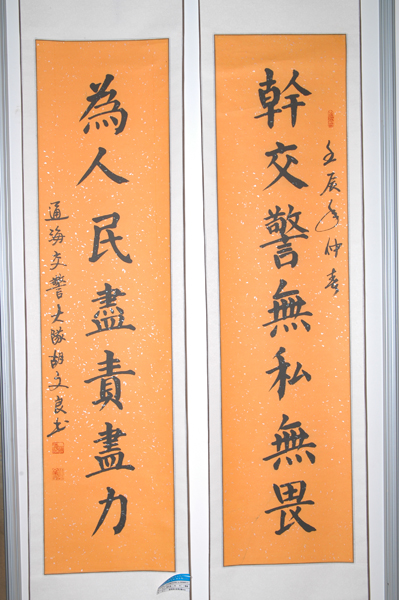 幹交警無私無畏
壬辰年仲春
為人民盡責盡力
通海交警大隊胡文良书